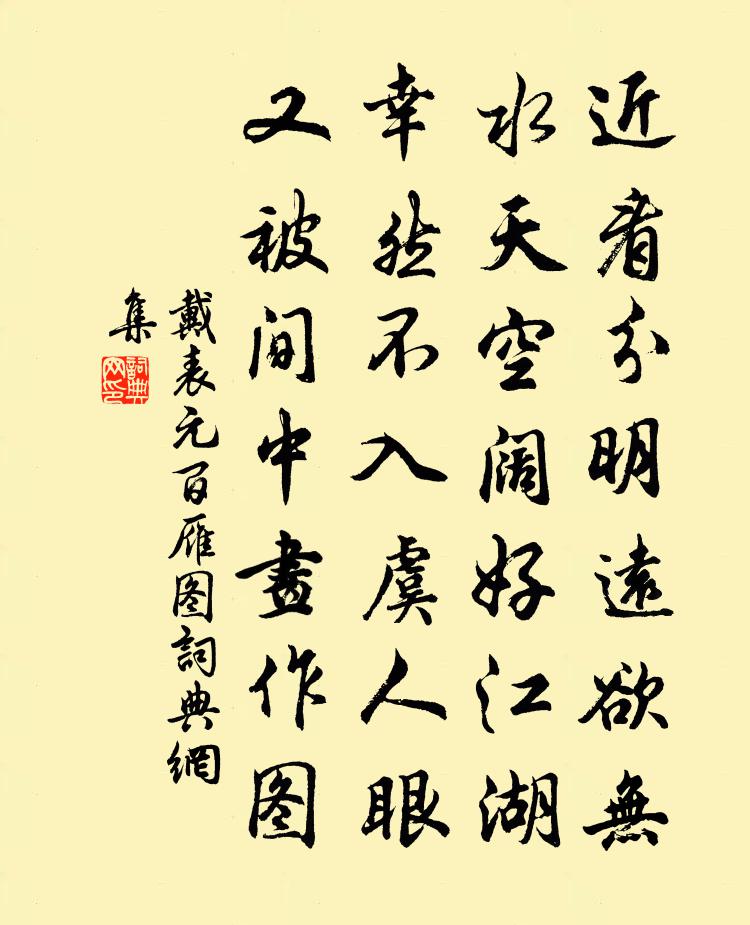 近看分明遠欲無
水天空阔好江湖
幸然不入虞人眼
又被间中畫作图
戴表元百雁图詞典網
集
詞典
网印